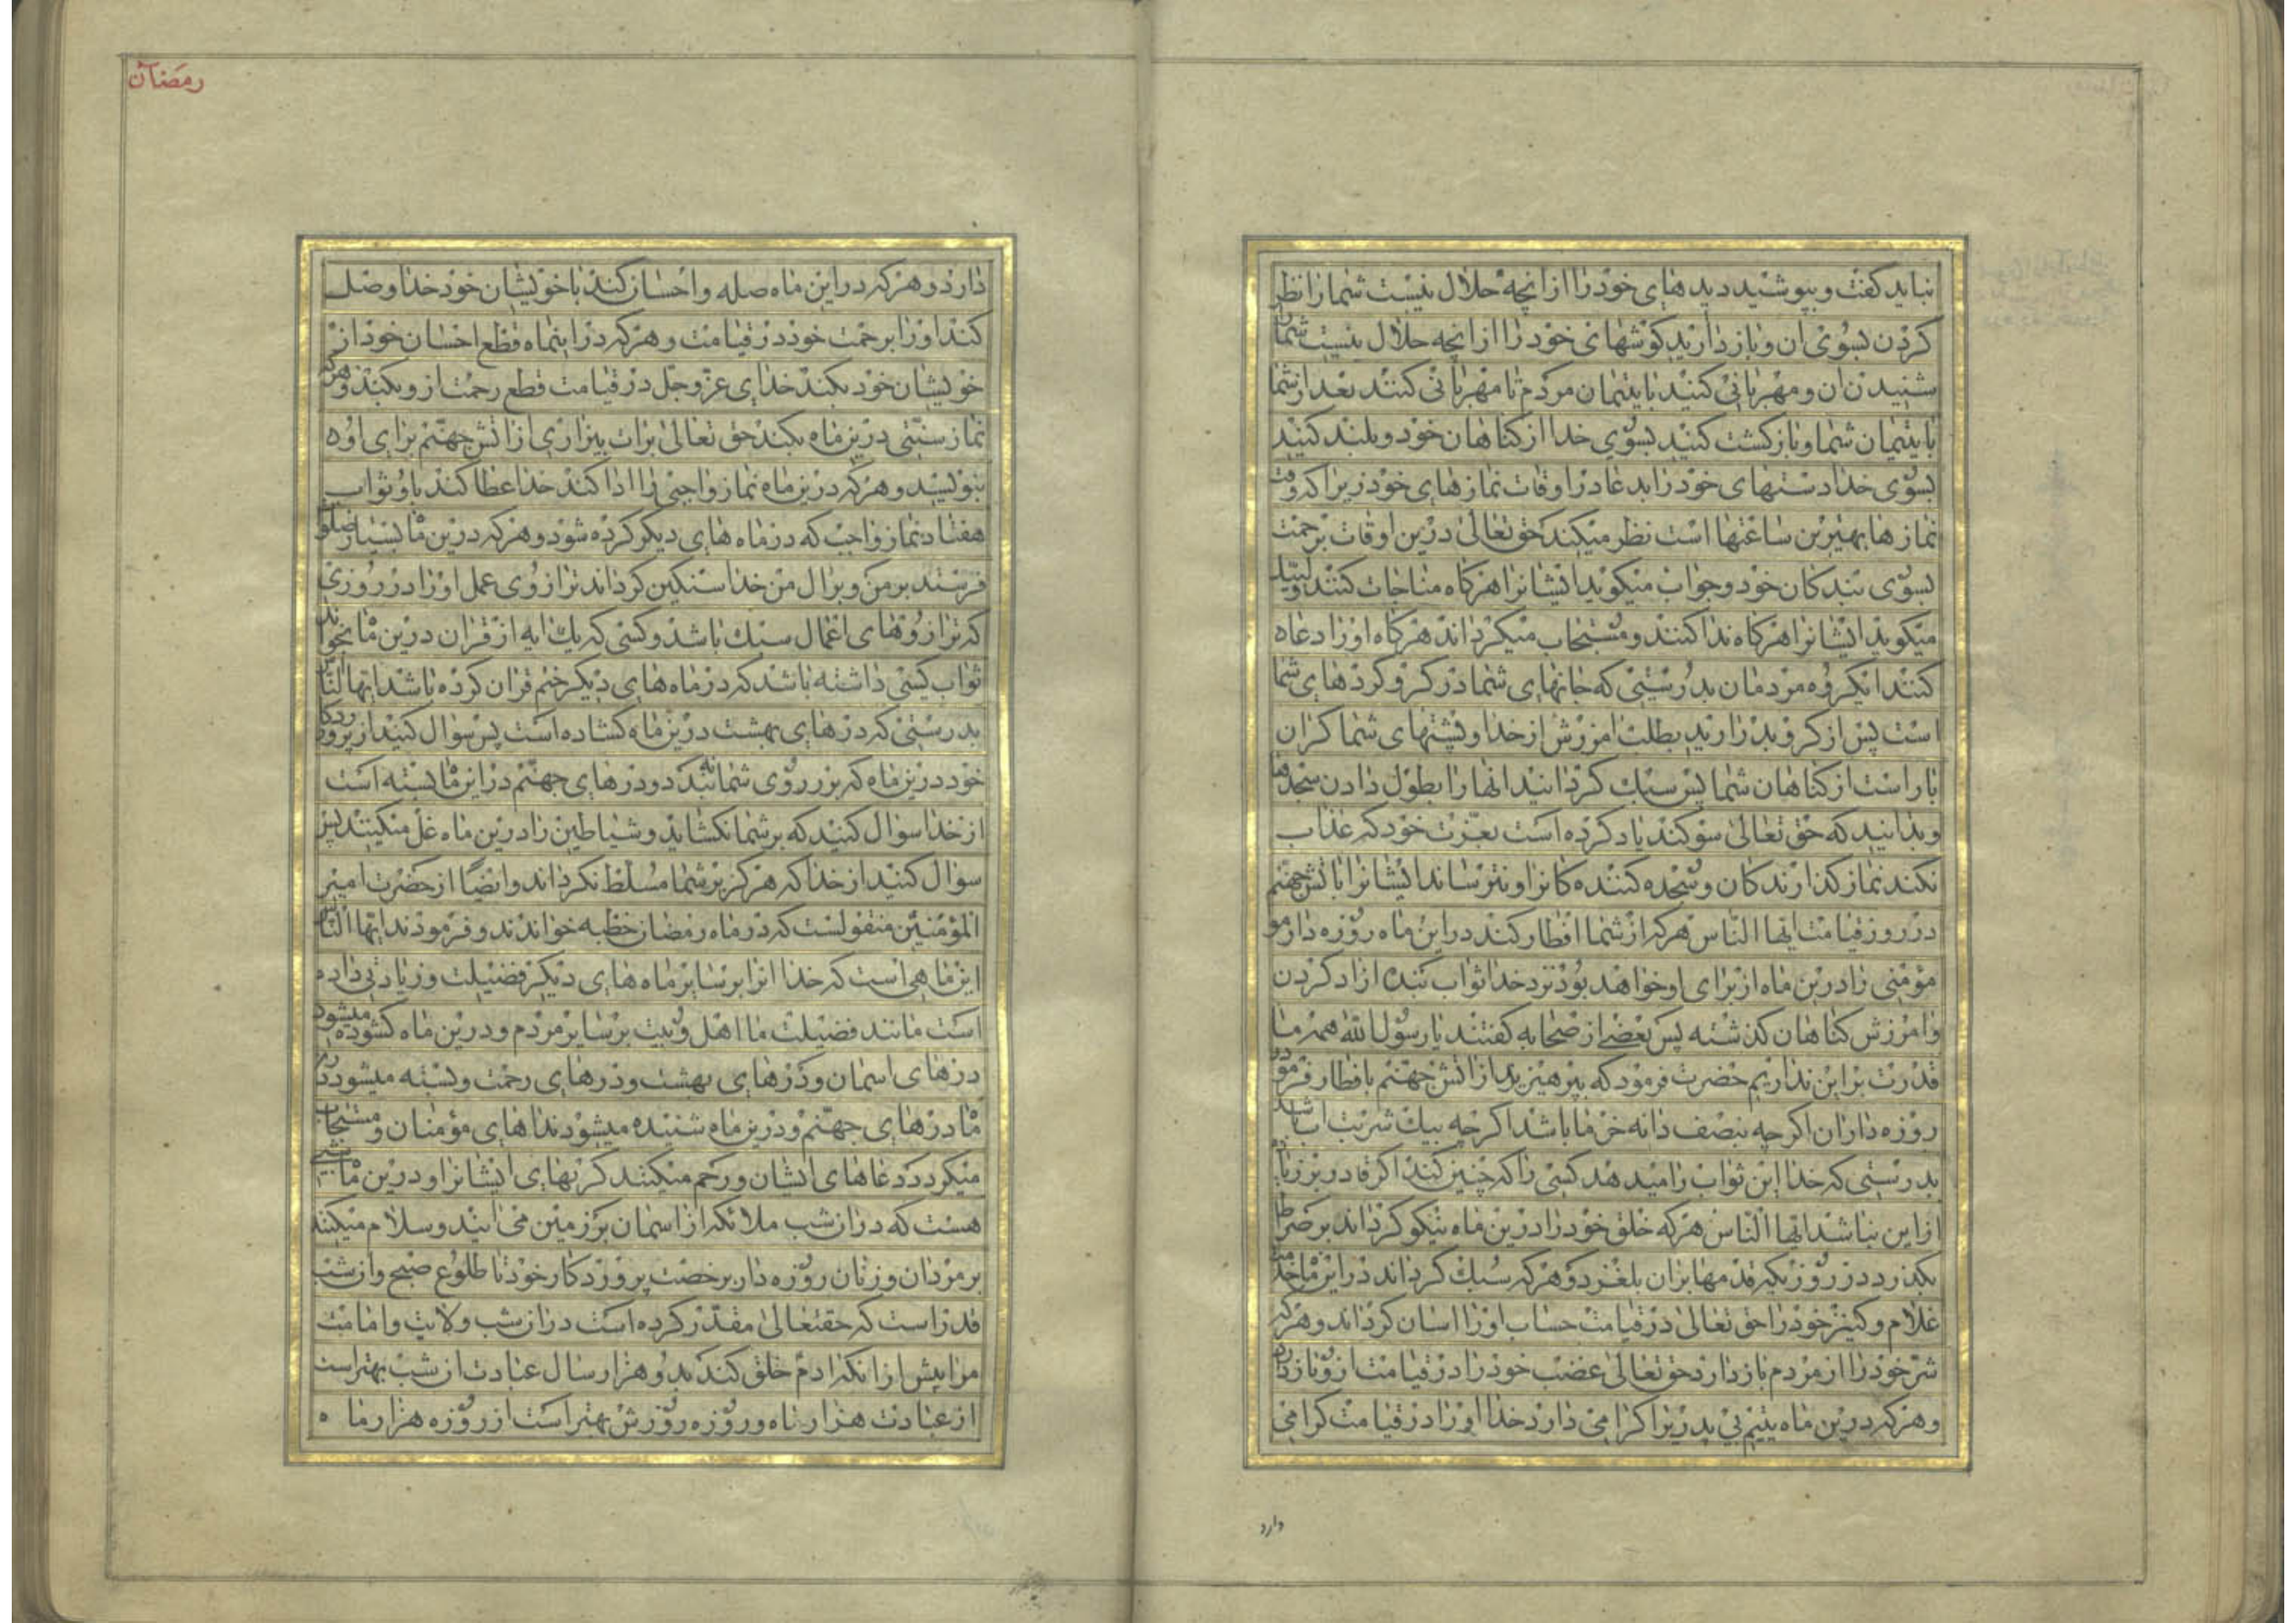 نباید کفت و بپوشید دیدهای خود را از انچه حلال نیست شما را نظر
کردن بسوی ان و باز دارید کوشهای خود را از انچه حلال نیست شما را
شنیدن ان و مهربانی کنید با یتیمان مردم تا مهربانی کنند بعد از شما
با یتیمان شما و باز کشت کنید بسوی خدا از کناهان خود و بلند کنید
بسوی خدا دستهای خود را بدعا در اوقات نمازهای خود زیرا که وقت
نمازها بهترین ساعتها است نظر میکند حق تعالی درین اوقات برحمت
بسوی بندکان خود و جواب میکوید ایشانرا هرکاه مناجات کنند و لبیک
میکوید ایشانرا هرکاه ندا کنند و مستجاب میکرداند هرکاه او را دعا ه
کنند ایکروه مردمان بدرستی که جانهای شما در کرو کردهای شما
است پس از کرو بدر ارید بطلب امرزش از خدا و پشتهای شما کران
بار است از کناهان شما پس سبک کردانید انها را بطول دادن سجدها
و بدانید که حق تعالی سوکند یاد کرده است بعزت خود که عذاب
نکند نماز کذارندکان و سجده کنندکانرا و نترساند ایشانرا باتش جهنم
در روز قیامت ایها الناس هرکه از شما افطار کند در این ماه روزه دار مو
مؤمنی را درین ماه از برای او خواهد بود نزد خدا ثواب بنده ازاد کردن
و امرزش کناهان کذشته پس بعضی از صحابه کفتند یا رسول الله همه ما
قدرت بر این نداریم حضرت فرمود که بپرهیزید از اتش جهنم بافطار فرمودن
روزه داران اکرچه بنصف دانه خرما باشد اکرچه بیک شربت اب باشد
بدرستی که خدا این ثواب را میدهد کسی را که چنین کند اکر قادر بر زیاده
از این نباشد ایها الناس هرکه خلق خود را درین ماه نیکو کرداند بر صراط
بکذرد در روزیکه قدمها بران بلغزد و هرکه سبک کرداند در این ماه خدمت
غلام و کنیز خود را حق تعالی در قیامت حساب او را اسان کرداند و هرکه
شر خود را از مردم باز دارد حق تعالی غضب خود را در قیامت از و باز دارد
و هرکه درین ماه یتیم بی پدریرا کرامی دارد خدا او را در قیامت کرامی
دارد
رمضان
دارد و هرکه در این ماه صله و احسان کند با خویشان خود خدا وصل
کند او را برحمت خود در قیامت و هرکه در اینماه قطع احسان خود از
خویشان خود بکند خدای عز و جل در قیامت قطع رحمت از و بکند و هرکه
نماز سنتی درین ماه بکند حق تعالی برات بیزاری از اتش جهنم برای او ه
بنویسد و هرکه درین ماه نماز واجبی را ادا کند خدا عطا کند باو ثواب
هفتاد نماز واجب که در ماه های دیکر کرده شود و هرکه درین ماه بسیار صلوات
فرستد بر من و بر ال من خدا سنکین کرداند ترازوی عمل او را در روزی
که ترازوهای اعمال سبک باشد و کسی که یک ایه از قران درین ماه بخواند
ثواب کسی داشته باشد که در ماه های دیکر ختم قران کرده باشد ایها الناس
بدرستی که درهای بهشت درین ماه کشاده است پس سؤال کنید از پروردکار
خود درین ماه که بر روی شما نبندد و درهای جهنم در این ماه بسته است
از خدا سؤال کنید که بر شما نکشاید و شیاطین را درین ماه غل میکنند پس
سؤال کنید از خدا که هرکز بر شما مسلط نکرداند و ایضا از حضرت امیر
المؤمنین منقولست که در ماه رمضان خطبه خواندند و فرمودند ایها الناس
این ماهی است که خدا انرا بر سایر ماه های دیکر فضیلت و زیادتی داده
است مانند فضیلت ما اهل بیت بر سایر مردم و درین ماه کشوده میشود
درهای اسمان و درهای بهشت و درهای رحمت و بسته میشود در
ماه درهای جهنم و درین ماه شنیده میشود نداهای مؤمنان و مستجاب
میکردد دعاهای ایشان و رحم میکنند کریهای ایشانرا و درین ماه شبی
هست که در ان شب ملائکه از اسمان بر زمین می ایند و سلام میکنند
بر مردان و زنان روزه دار برخصت پروردکار خود تا طلوع صبح و ان شب
قدر است که حقتعالی مقدر کرده است در ان شب ولایت و امامت
مرا پیش از انکه ادم خلق کند بدو هزار سال عبادت ان شب بهتر است
از عبادت هزار ماه و روزه روزش بهتر است از روزه هزار ماه